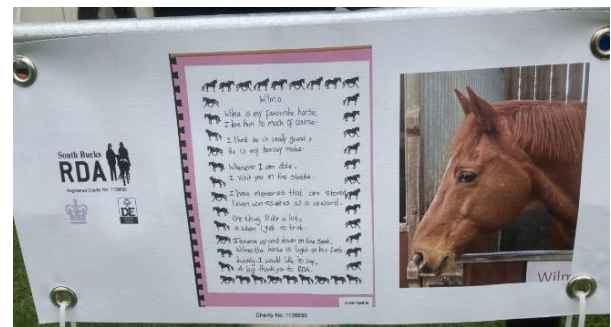 South Bucks
RDA
Registered Charity No. 1128530
DE
Wilma
Wilma is my favourite horse,
I love him so much of course.
I think he is really great,
He is my horsey mate.
Whenever I am able,
I visit you in the stable.
I have memories that are stored,
I even win rosettes as a reward.
One thing I like a lot,
is when I get to trot.
I bounce up and down on the seat,
Wilma the horse is light on his feet.
I would like to say,
A big thank you to RDA.
Charity No: 1128530
Wilm